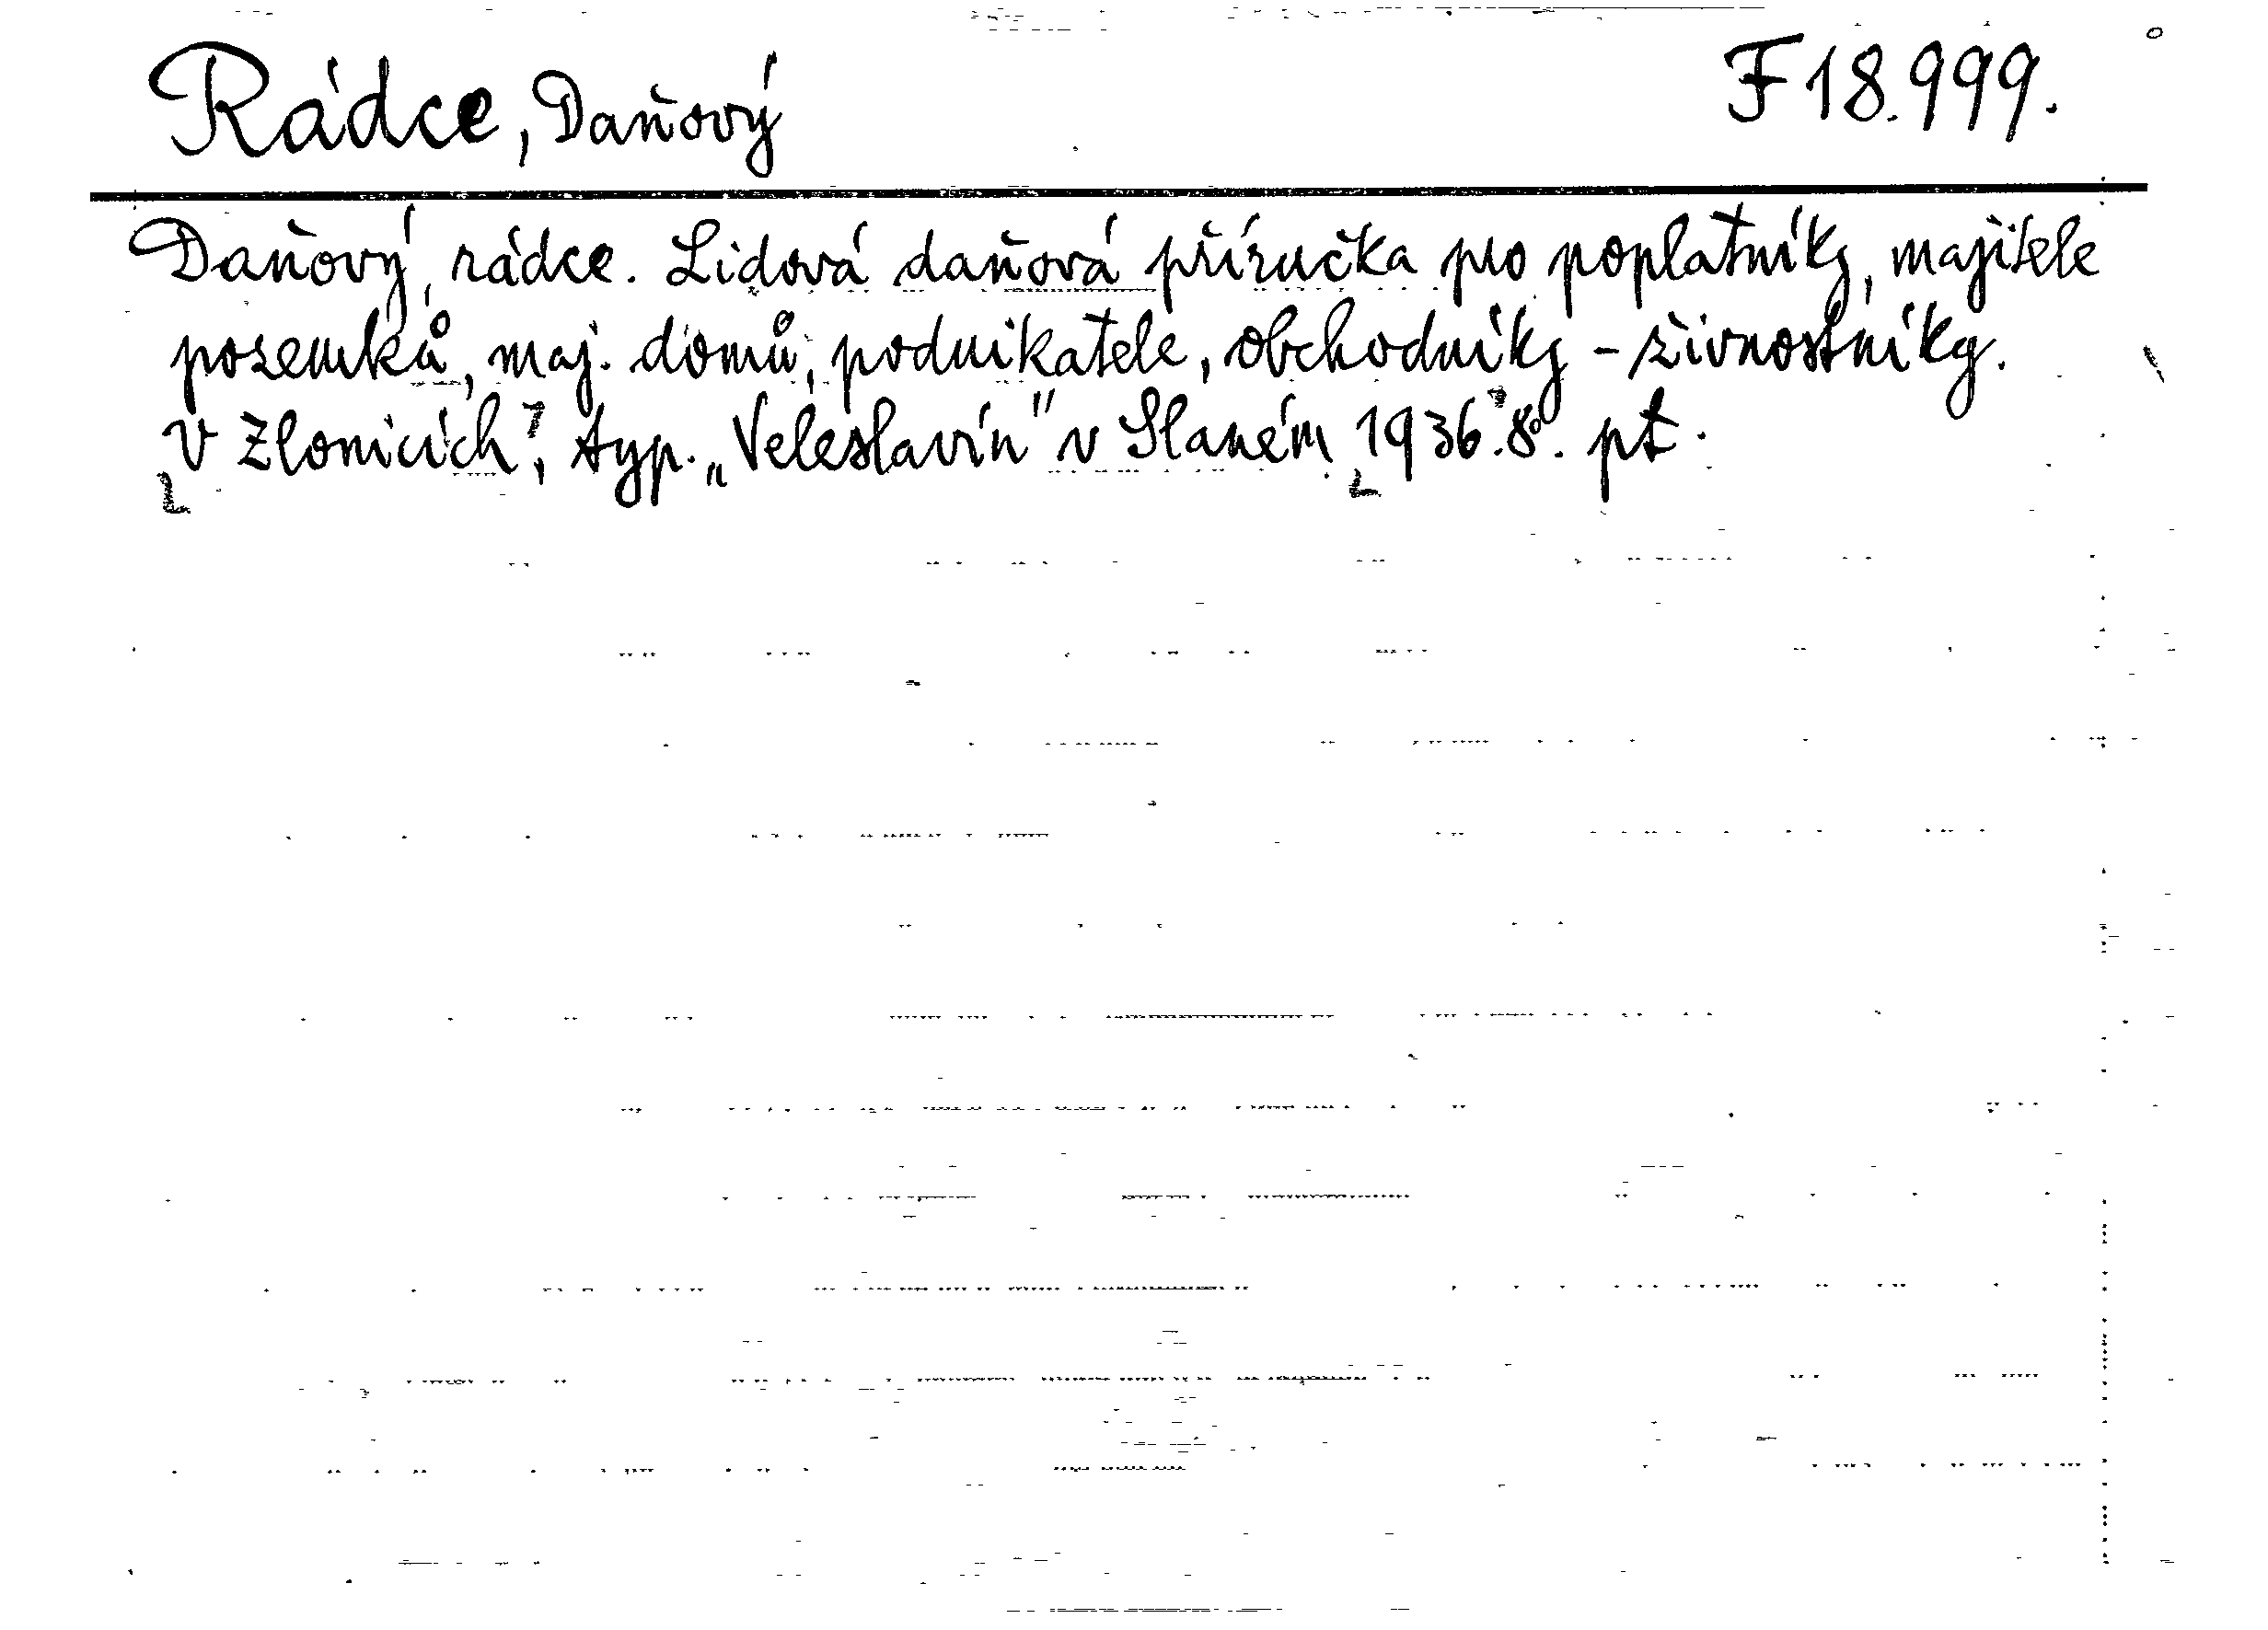 Rádce, Daňový F 18.999.
Daňový rádce. Lidová daňová příručka pro poplatníky, majitele
pozemků, maj. domů, podnikatele, obchodníky - živnostníky.
V Zlonicích, typ. „Veleslavín" v Slaném 1936. 8°. pt.